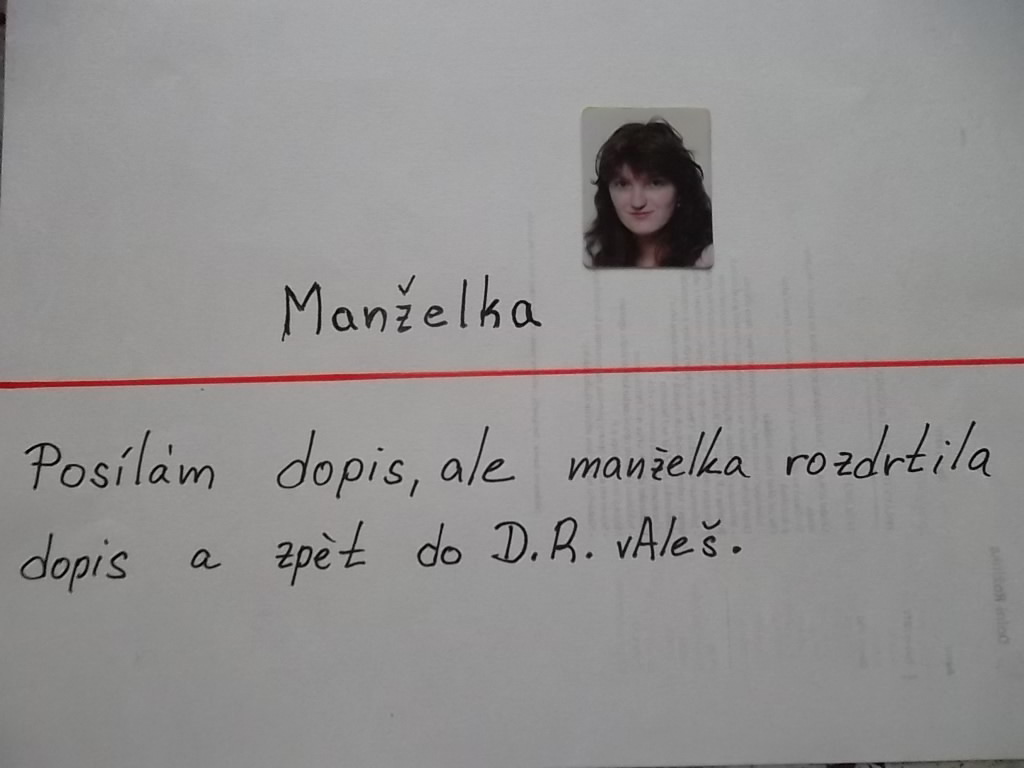 Manželka
Posílám dopis, ale manželka rozdrtila
dopis a zpèt do D.R. vAleš.